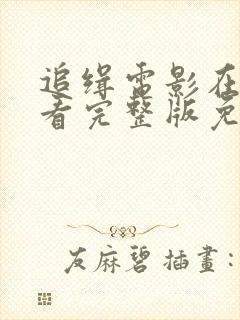 追缉电影在
看完整版免
友麻碧插畫: